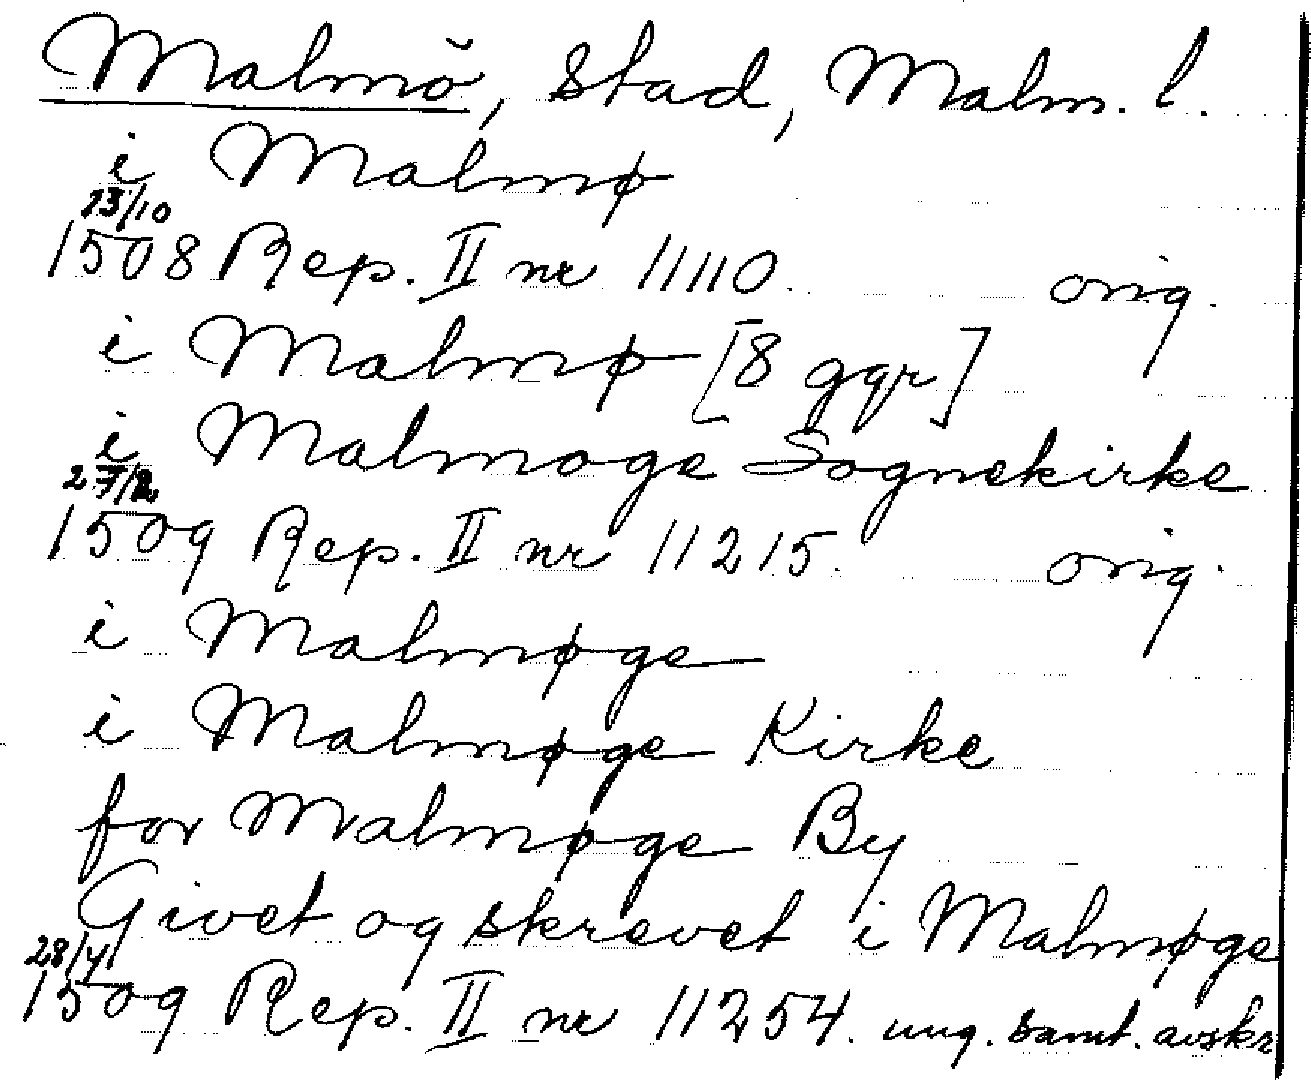 Malmö, stad, Malm. l.
i Malmø
23/10
1508 Rep. II nr 11110. orig.
i Malmø [8 ggr]
i Malmoge Sognekirke
27/2
1509 Rep. II nr 11215. orig.
i Malmøge
i Malmøge Kirke
for Malmøge By
Givet og skrevet i Malmøge
28/4
1509 Rep. II nr 11254. ung. samt. avskr